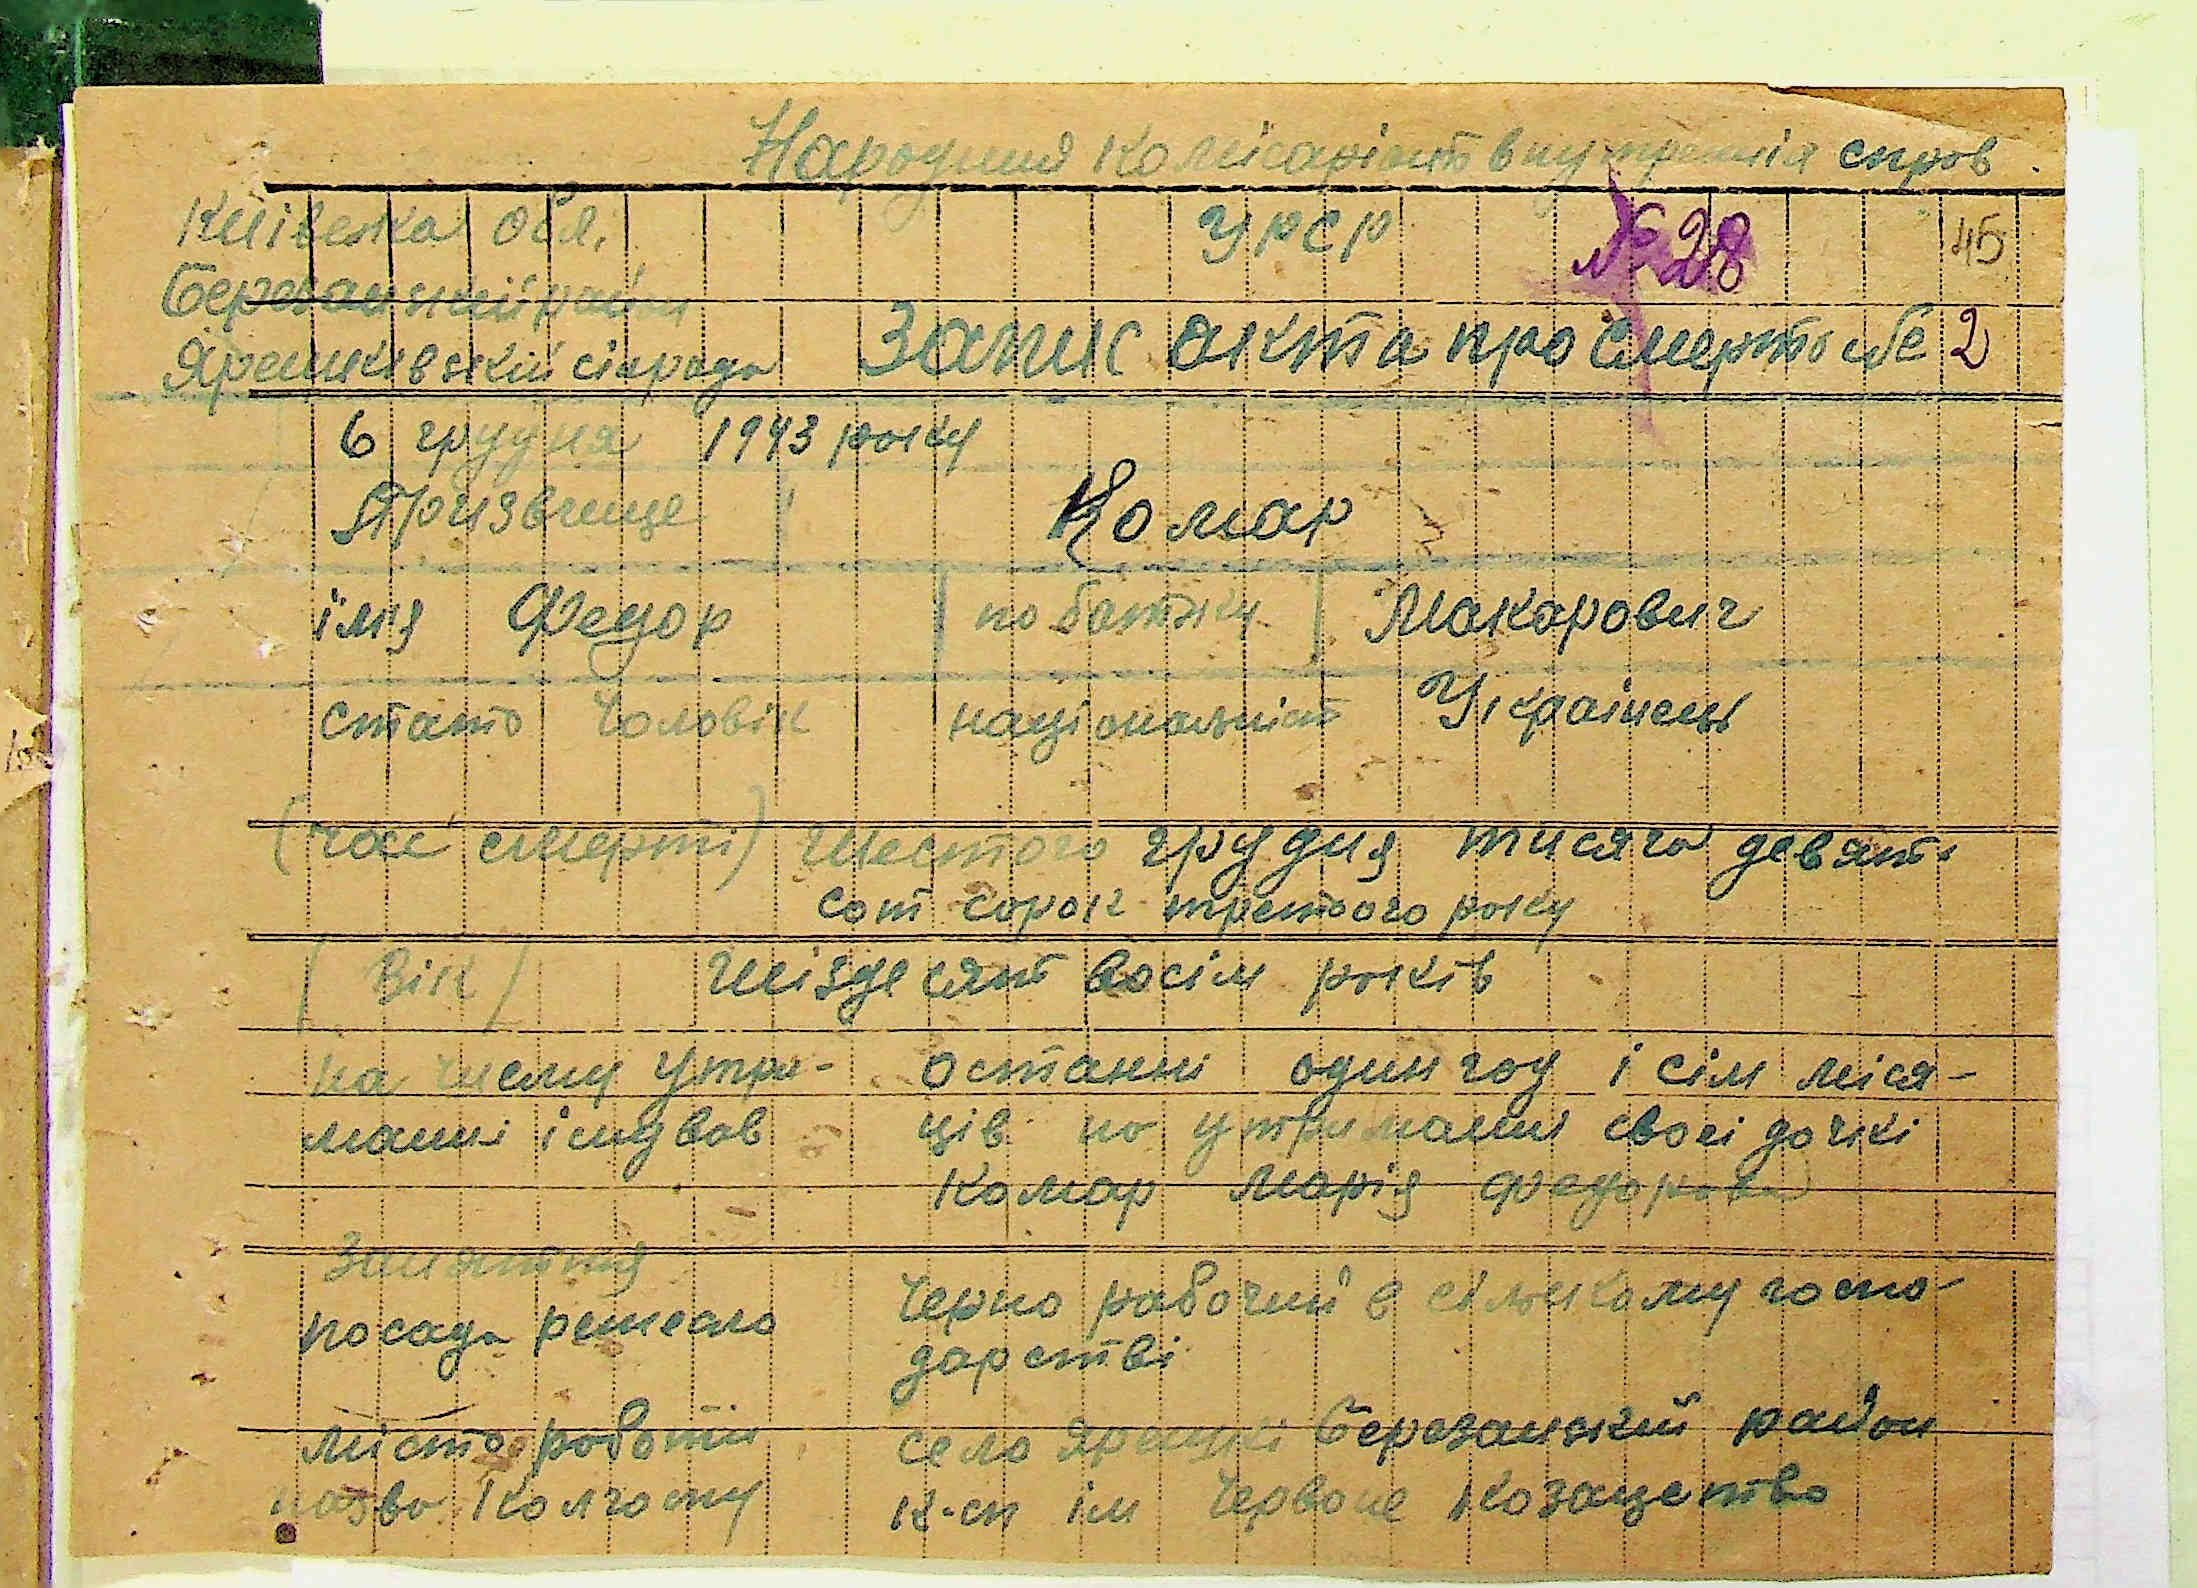 Народний комісаріят внутренніх справ.
Київська обл. УРСР № 28 45
Березанський район
Ярешківській сільрада Запис акта про смерть № 2
6 грудня 1943 року
Призвище Комар
імя Федор по батьку Макарович
стать Чоловік національніст Українець
(час смерти) шестого грудня тисяча девят-
сот сорок третього року
(Вік) шіздесят восім років
на чиєму утри- останні один год і сім міся-
манні існував ців на утриманні своєї дочкі
Комар Марія Федоровна
Заняття
посада ремесло Чернорабочий в сільському госпо-
дарстві
місто роботи село Ярешкі Березанський район
назва колгоспу к-сп ім Червоне козацтво